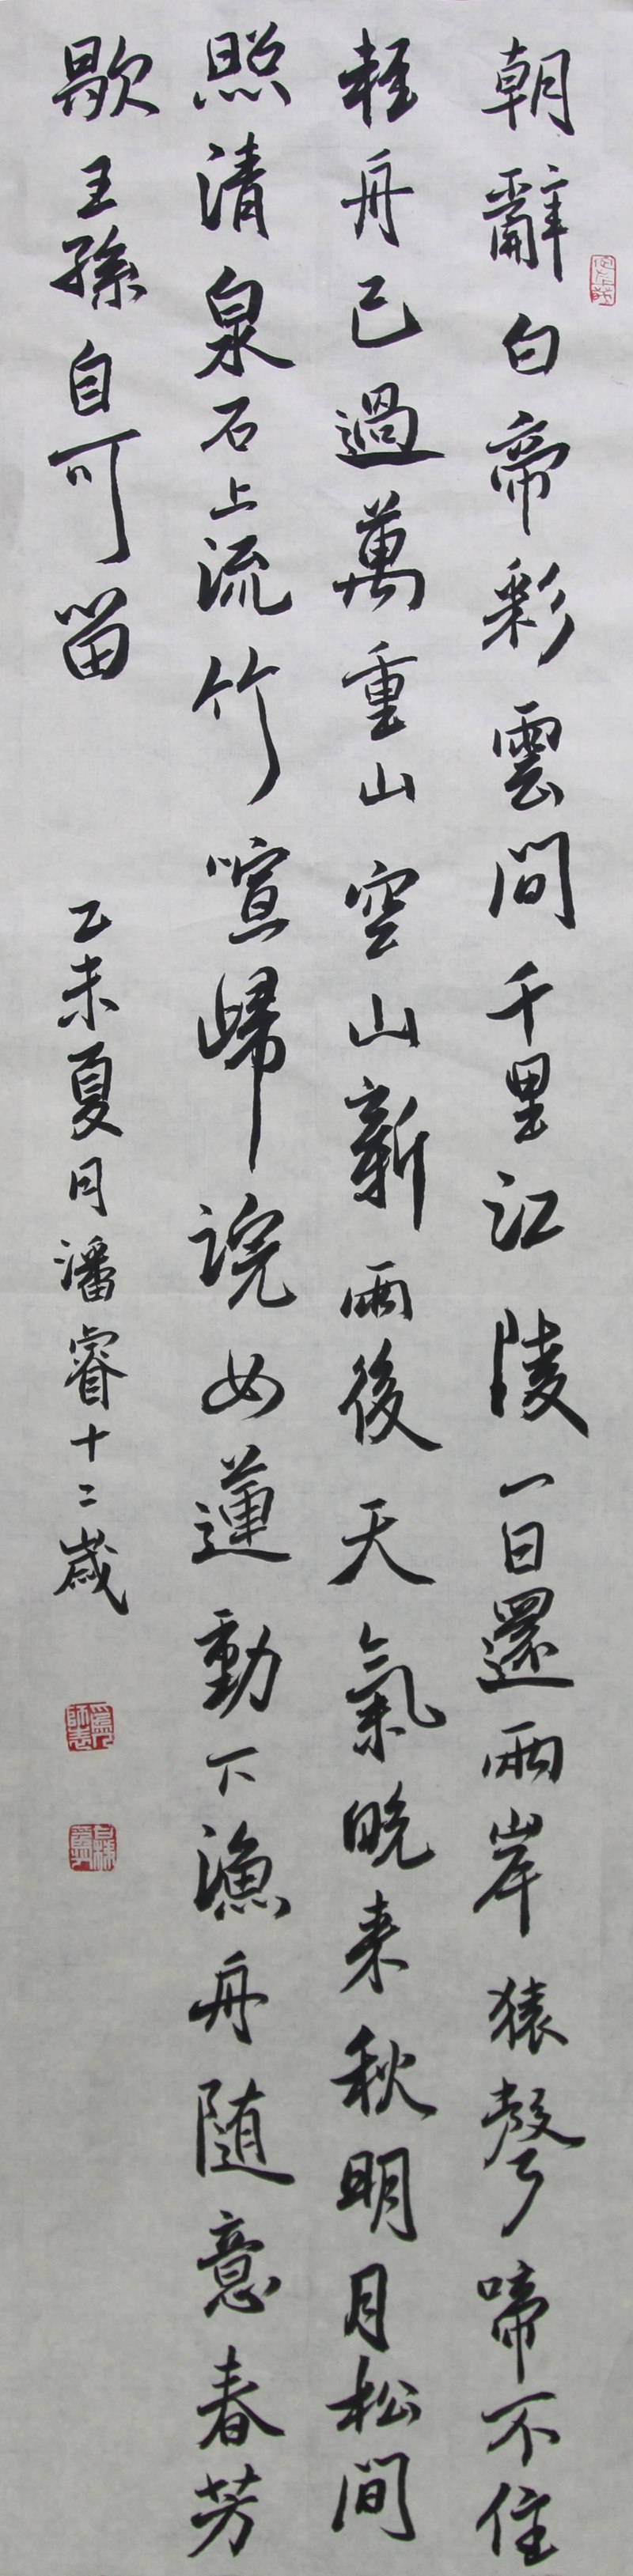 朝辭白帝彩雲間千里江陵一日還兩岸猿聲啼不住
輕舟已過萬重山空山新雨後天氣晚来秋明月松間
照清泉石上流竹喧歸浣女蓮動下漁舟随意春芳
歇王孫自可留
乙未夏月潘睿十二歲